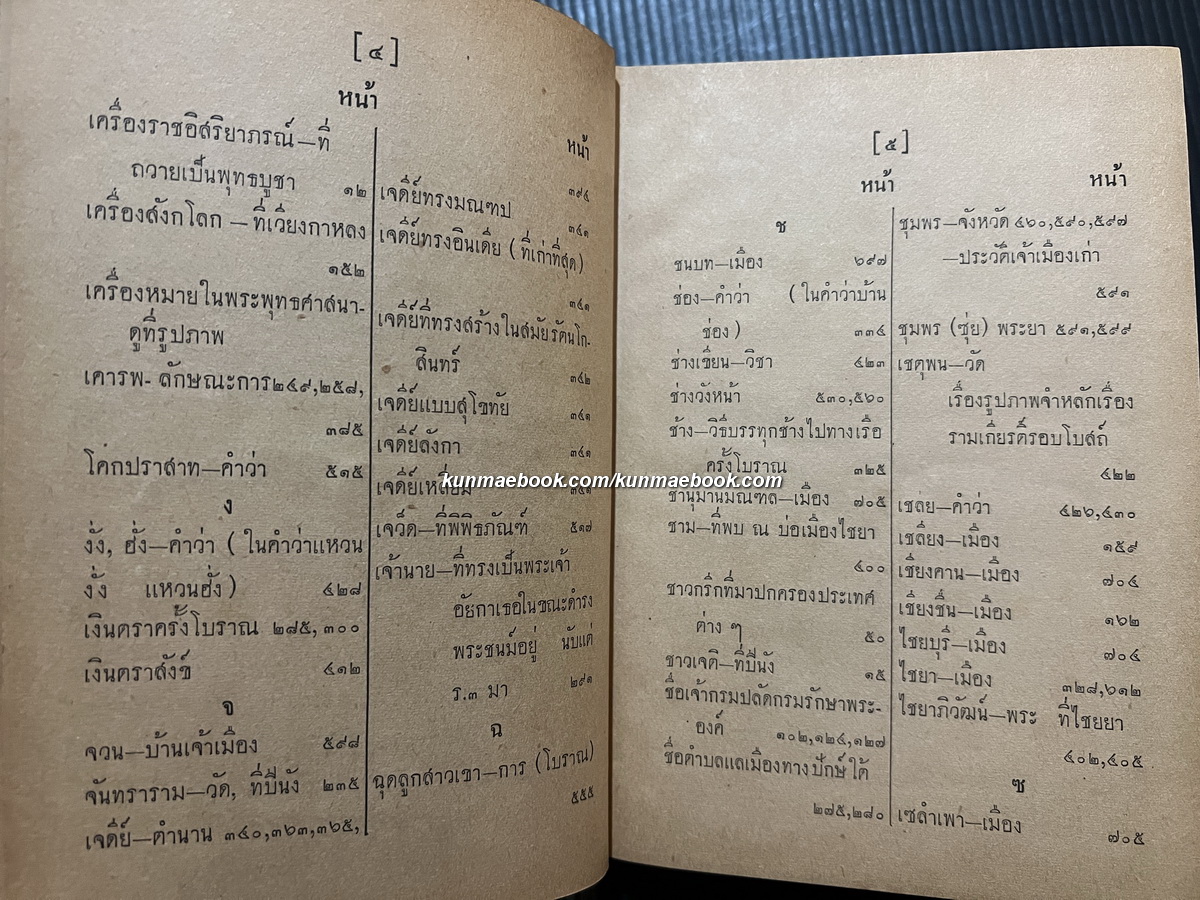 [๔]
หน้า
เครื่องราชอิสริยาภรณ์—ที่
ถวายเป็นพุทธบูชา ๑๒
เครื่องสังกโลก — ที่เวียงกาหลง
๑๕๒
เครื่องหมายในพระพุทธศาสนา-
ดูที่รูปภาพ
เคารพ- ลักษณะการ๒๔๙,๒๕๘,
๓๘๕
โคกปราสาท—คำว่า ๕๑๕
ง
งั่ง, ฮั่ง—คำว่า ( ในคำว่าแหวน
งั่ง แหวนฮั่ง ) ๔๒๘
เงินตราครั้งโบราณ ๒๘๕, ๓๐๐
เงินตราสังข์ ๔๑๒
จ
จวน—บ้านเจ้าเมือง ๕๙๘
จันทราราม—วัด, ที่ปีนัง ๒๓๕
เจดีย์—ตำนาน ๓๔๐,๓๖๓,๓๖๕,
หน้า
๓๙๔
เจดีย์ทรงมณฑป ๓๔๑
เจดีย์ทรงอินเดีย ( ที่เก่าที่สุด)
๓๔๑
เจดีย์ที่ทรงสร้างในสมัยรัตนโก-
สินทร์ ๓๔๒
เจดีย์แบบสุโขทัย ๓๔๑
เจดีย์ลังกา ๓๔๑
เจดีย์เหลี่ยม ๓๔๑
เจว็ด—ที่พิพิธภัณฑ์ ๕๑๗
เจ้านาย—ที่ทรงเป็นพระเจ้า
อัยกาเธอในขณะดำรง
พระชนม์อยู่ นับแต่
ร.๓ มา ๒๙๑
ฉ
ฉุดลูกสาวเขา—การ (โบราณ)
๕๕๕
[๕]
หน้า
ช
ชนบท—เมือง ๖๙๗
ช่อง—คำว่า ( ในคำว่าบ้าน
ช่อง ) ๓๓๔
ช่างเขียน—วิชา ๔๒๓
ช่างวังหน้า ๕๓๐,๕๖๐
ช้าง—วิธีบรรทุกช้างไปทางเรือ
ครั้งโบราณ ๓๒๕
ชานุมานมณฑล—เมือง ๗๐๕
ชาม—ที่พบ ณ บ่อเมืองไชยา
๔๐๐
ชาวกรีกที่มาปกครองประเทศ
ต่าง ๆ ๕๐
ชาวเจดี—ที่ปีนัง ๑๕
ชื่อเจ้ากรมปลัดกรมรักษาพระ-
องค์ ๑๐๒,๑๒๔,๑๒๗
ชื่อตำบลแลเมืองทางปักษ์ใต้
๒๗๕,๒๘๐
หน้า
ชุมพร—จังหวัด ๔๖๐,๕๙๐,๕๙๗
—ประวัติเจ้าเมืองเก่า
๕๙๑
ชุมพร (ซุ่ย) พระยา ๕๙๑,๕๙๙
เชตุพน—วัด
เรื่องรูปภาพจำหลักเรื่อง
รามเกียรติ์รอบโบสถ์
๔๒๒
เชลย—คำว่า ๔๒๖,๔๓๐
เชลียง—เมือง ๑๕๙
เชียงคาน—เมือง ๗๐๔
เชียงชื่น—เมือง ๑๖๒
ไชยบุรี—เมือง ๗๐๔
ไชยา—เมือง ๓๒๘,๖๑๒
ไชยาภิวัฒน์—พระ ที่ไชยยา
๔๐๒,๔๐๕
ซ
เซลำเพา—เมือง ๗๐๕
kunmaebook.com/kunmaebook.com